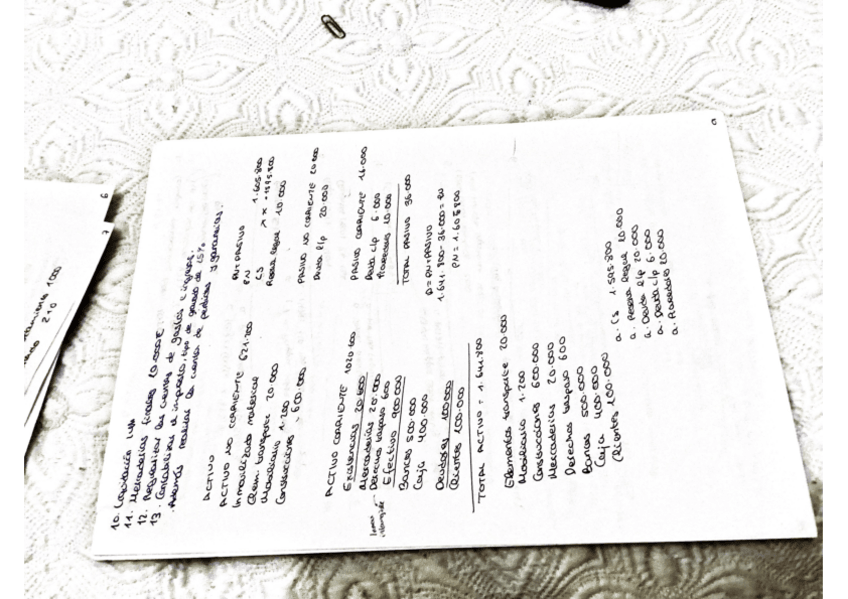 10. Liquidación IVA
11. Mercaderías finales 20.000€
12. Regularizar las cuentas de gastos e ingresos.
13. Contabilizar el impuesto, tipo de gravamen 15%
Además realiza la cuenta de pérdidas y ganancias.
ACTIVO
ACTIVO NO CORRIENTE 621.200
Inmovilizado material
Elem. transporte 20.000
Mobiliario 1.200
Construcciones 600.000
ACTIVO CORRIENTE 1020.600
Existencias 20.600
Mercaderías 20.000
Efectivo 900.000
Bancos 500.000
Caja 400.000
Deudores 100.000
Clientes 100.000
TOTAL ACTIVO = 1.641.800
PN + PASIVO
PN 1.605.800
CS x = 1595.800
Reserva legal 10.000
PASIVO NO CORRIENTE 20.000
Deuda l/p 20.000
PASIVO CORRIENTE 16.000
Deuda c/p 6.000
Proveedores 10.000
TOTAL PASIVO 36.000
A = PN + PASIVO
PN = 1.605.800
Elementos transporte 20.000
Mobiliario 1.200
Construcciones 600.000
Mercaderías 20.000
Bancos 500.000
Caja 400.000
Clientes 100.000
a. CS 1.595.800
a. Reserva legal 10.000
a. Deuda l/p 20.000
a. Deuda c/p 6.000
a. Proveedores 10.000
6
7
1000
210